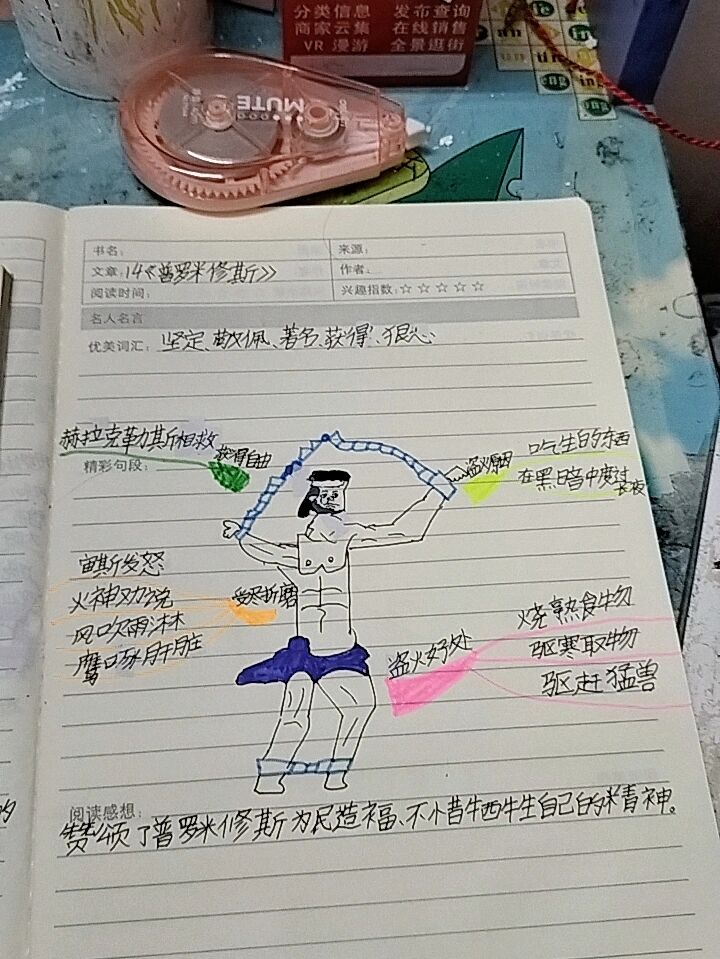 分类信息 发布查询
商家云集 在线销售
VR 漫游 全景逛街
MUTE
书名:
来源:
文章: 14《普罗米修斯》
作者:
阅读时间:
兴趣指数: ☆ ☆ ☆ ☆ ☆
名人名言
优美词汇: 坚定、敬佩、著名、获得、狠心
赫拉克勒斯相救
获得自由
精彩句段:
盗火原因
吃生的东西
在黑暗中度过
长夜
宙斯发怒
火神劝说
风吹雨淋
鹰啄肝脏
受尽折磨
盗火好处
烧熟食物
驱寒取物
驱赶猛兽
阅读感想:
赞颂了普罗米修斯为民造福、不惜牺牲自己的精神。